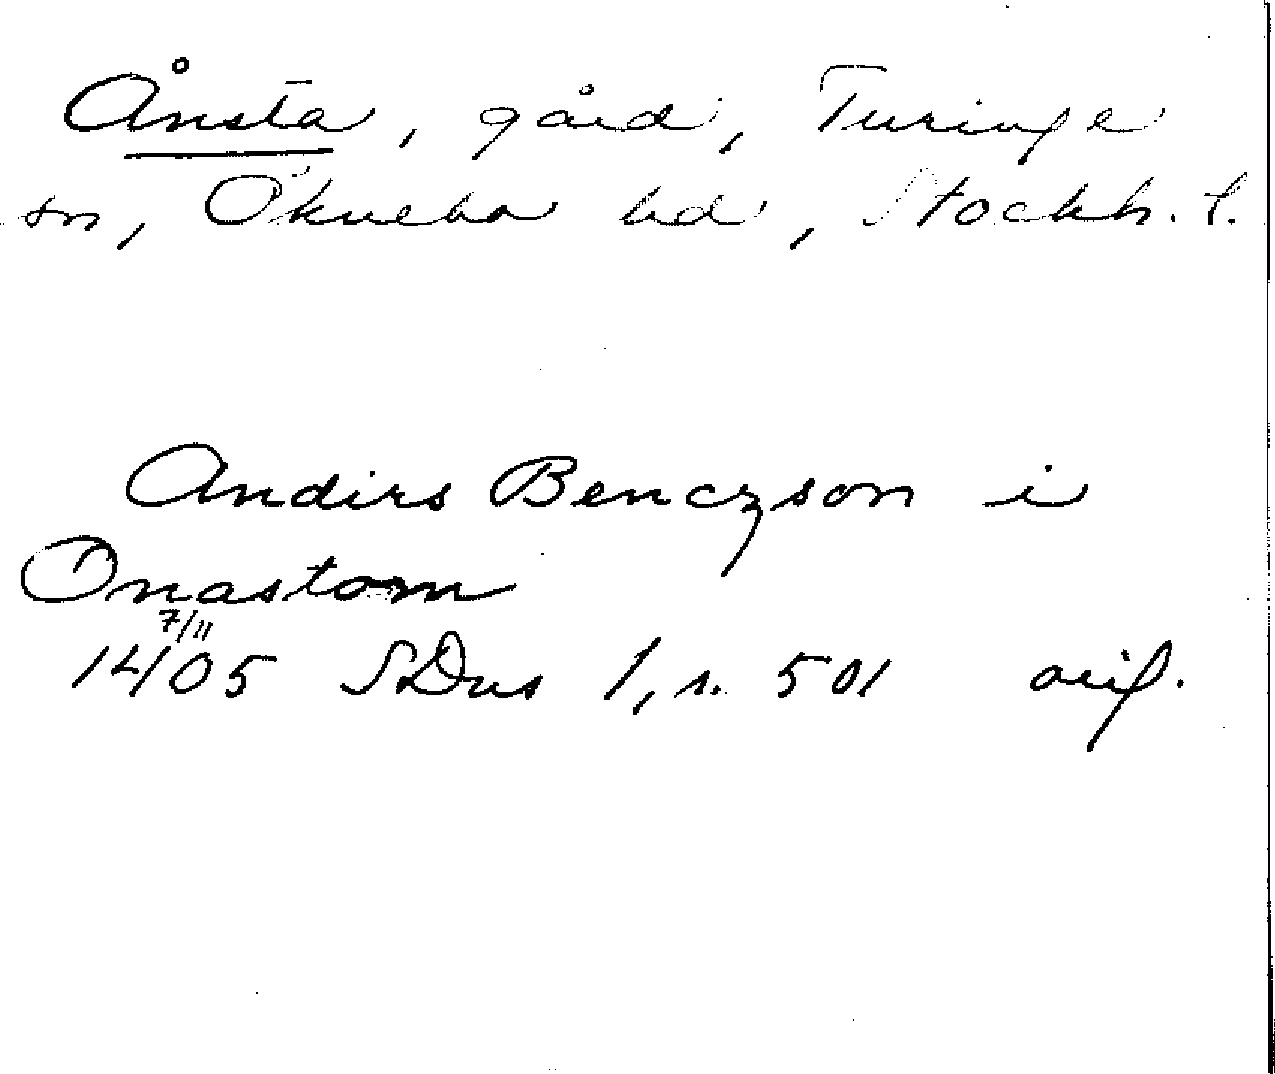 Ånsta, gård, Turinge
sn, Öknebo hd, Stockh. l.
Andirs Benczson i
Onastom
7/11
1405 SDns 1, s. 501 orig.